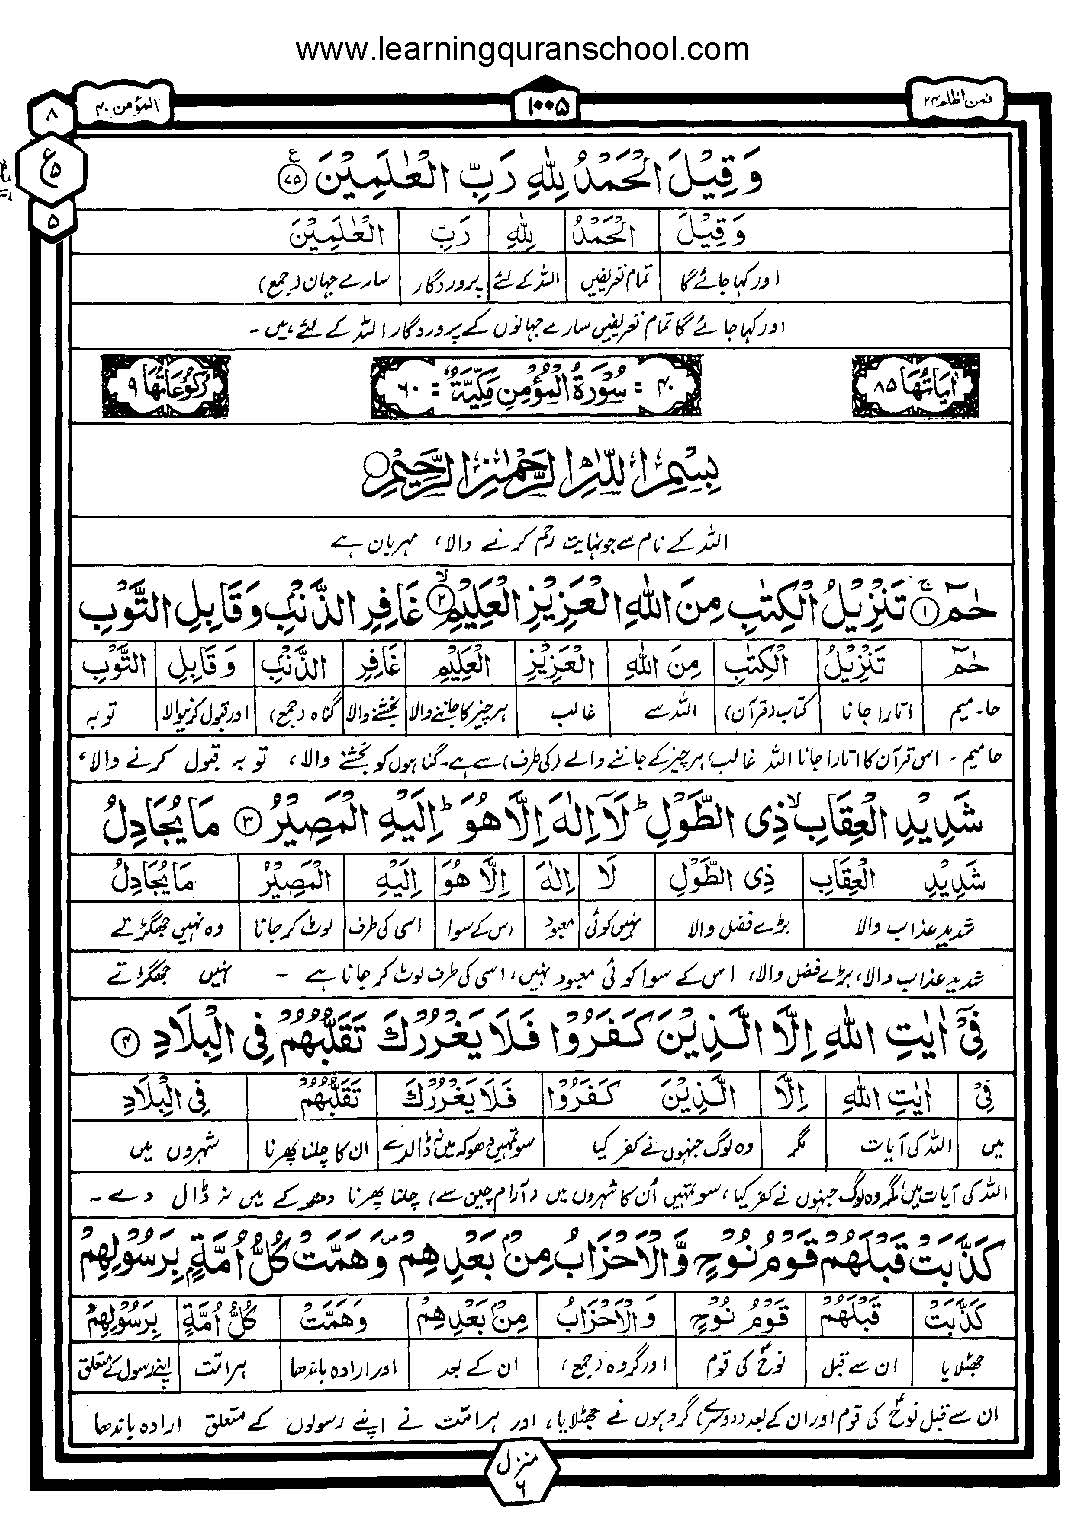 www.learningquranschool.com
فمن اظلم ۲۴ ۱۰۰۵ المؤمن ۴۰
۸
ع
۵
۵
وَقِيْلَ الْحَمْدُ لِلّٰهِ رَبِّ الْعٰلَمِيْنَ ۷۵
وَقِيْلَ الْحَمْدُ لِلّٰهِ رَبِّ الْعٰلَمِيْنَ
اور کہا جائے گا تمام تعریفیں اللہ کے لئے پروردگار سارے جہان (جمع)
اور کہا جائے گا تمام تعریفیں سارے جہانوں کے پروردگار اللہ کے لئے ہیں۔
اٰیَاتُهَا ۸۵ ۴۰ = سُوْرَةُ الْمُؤْمِنِ مَكِّيَّةٌ = ۶۰ رُكُوْعَاتُهَا ۹
بِسْمِ اللّٰهِ الرَّحْمٰنِ الرَّحِيْمِ
اللہ کے نام سے جو نہایت رحم کرنے والا، مہربان ہے
حٰمٓ ۱ تَنْزِيْلُ الْكِتٰبِ مِنَ اللّٰهِ الْعَزِيْزِ الْعَلِيْمِ ۲ غَافِرِ الذَّنْۢبِ وَقَابِلِ التَّوْبِ
حٰمٓ تَنْزِيْلُ الْكِتٰبِ مِنَ اللّٰهِ الْعَزِيْزِ الْعَلِيْمِ غَافِرِ الذَّنْۢبِ وَقَابِلِ التَّوْبِ
حا۔میم اتارا جانا کتاب (قرآن) اللہ سے غالب ہر چیز کا جاننے والا بخشنے والا گناہ (جمع) اور قبول کرنیوالا توبہ
حامیم۔ اس قرآن کا اتارا جانا اللہ غالب، ہر چیز کے جاننے والے (کی طرف) سے ہے۔ گناہوں کو بخشنے والا، توبہ قبول کرنے والا،
شَدِيْدِ الْعِقَابِ ۙ ذِی الطَّوْلِ ؕ لَاۤ اِلٰهَ اِلَّا هُوَ ؕ اِلَيْهِ الْمَصِيْرُ ۳ مَا يُجَادِلُ
شَدِيْدِ الْعِقَابِ ذِی الطَّوْلِ لَا اِلٰهَ اِلَّا هُوَ اِلَيْهِ الْمَصِيْرُ مَا يُجَادِلُ
شدید عذاب والا بڑے فضل والا نہیں کوئی معبود اس کے سوا اسی کی طرف لوٹ کر جانا وہ نہیں جھگڑتے
شدید عذاب والا، بڑے فضل والا، اس کے سوا کوئی معبود نہیں، اسی کی طرف لوٹ کر جانا ہے ۔ نہیں جھگڑتے
فِیْۤ اٰيٰتِ اللّٰهِ اِلَّا الَّذِيْنَ كَفَرُوْا فَلَا يَغْرُرْكَ تَقَلُّبُهُمْ فِی الْبِلَادِ ۴
فِیْۤ اٰيٰتِ اللّٰهِ اِلَّا الَّذِيْنَ كَفَرُوْا فَلَا يَغْرُرْكَ تَقَلُّبُهُمْ فِی الْبِلَادِ
میں اللہ کی آیات مگر وہ لوگ جنہوں نے کفر کیا سو تمہیں دھوکہ میں نہ ڈالدے ان کا چلنا پھرنا شہروں میں
اللہ کی آیات میں مگر وہ لوگ جنہوں نے کفر کیا، سو تمہیں اُن کا شہروں میں (آرام چین سے) چلنا پھرنا دھوکے میں نہ ڈال دے۔
كَذَّبَتْ قَبْلَهُمْ قَوْمُ نُوْحٍ وَّالْاَحْزَابُ مِنْۢ بَعْدِهِمْ ۪ وَهَمَّتْ كُلُّ اُمَّةٍۭ بِرَسُوْلِهِمْ
كَذَّبَتْ قَبْلَهُمْ قَوْمُ نُوْحٍ وَّالْاَحْزَابُ مِنْۢ بَعْدِهِمْ وَهَمَّتْ كُلُّ اُمَّةٍ بِرَسُوْلِهِمْ
جھٹلایا ان سے قبل نوحؑ کی قوم اور گروہ (جمع) ان کے بعد اور ارادہ باندھا ہر امت اپنے رسول کے متعلق
ان سے قبل نوحؑ کی قوم اور ان کے بعد (دوسرے) گروہوں نے جھٹلایا، اور ہر امت نے اپنے رسولوں کے متعلق ارادہ باندھا
منزل ۶